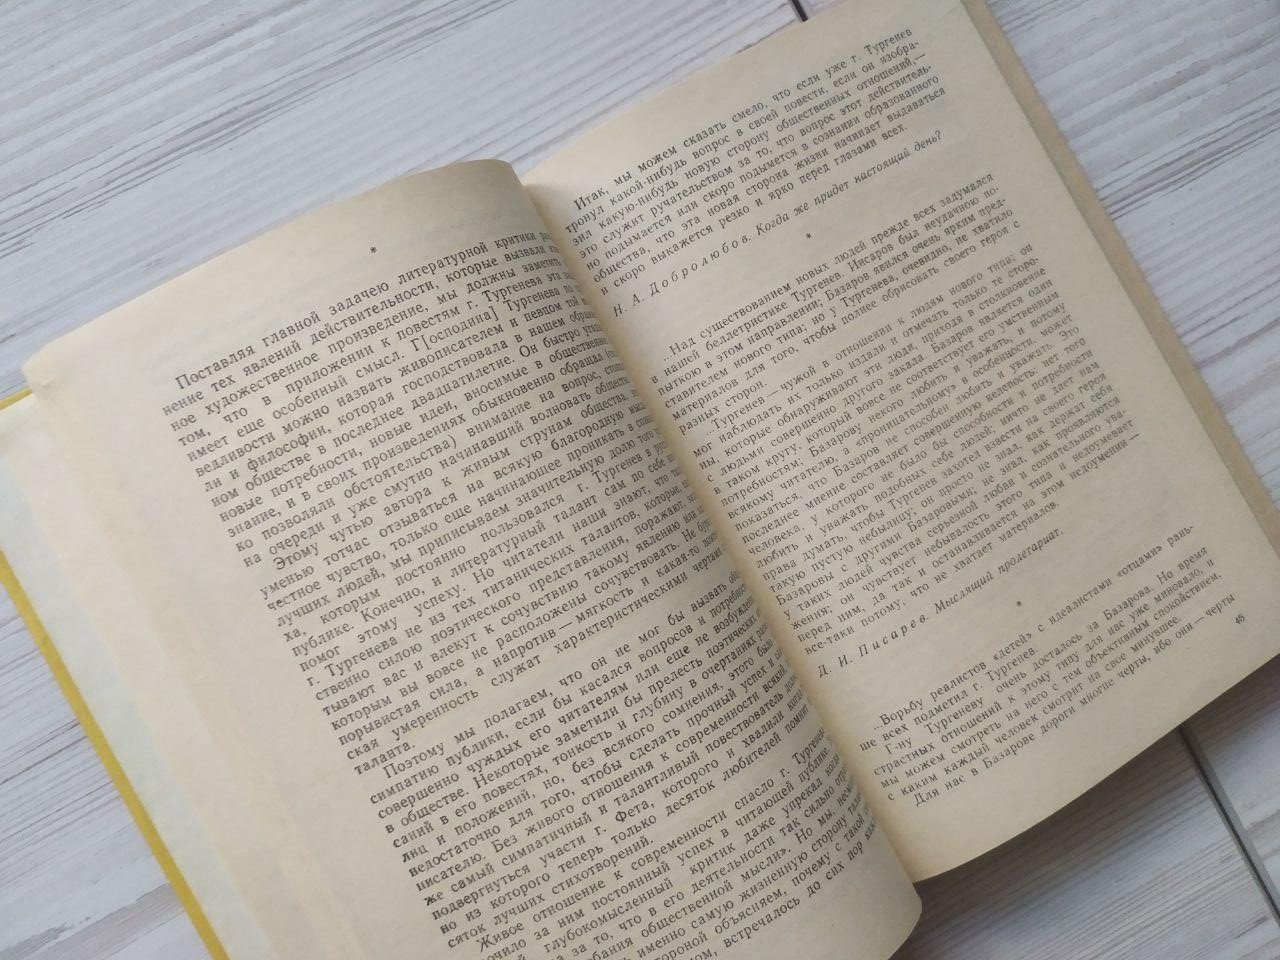 *
Поставляя главной задачею литературной критики
нение тех явлений действительности, которые вызвали
ное художественное произведение, мы должны заметить
том, что в приложении к повестям г. Тургенева эта
имеет еще особенный смысл. Г[осподина] Тургенева по
ведливости можно назвать живописателем и певцом той
ли и философии, которая господствовала в нашем
ном обществе в последнее двадцатилетие. Он быстро
новые потребности, новые идеи, вносимые в общественное
знание, и в своих произведениях обыкновенно обращал
ко позволяли обстоятельства) внимание на вопрос,
на очереди и уже смутно начинавший волновать
Этому чутью автора к живым струнам общества,
уменью тотчас отзываться на всякую благородную
честное чувство, только еще начинающее проникать в
лучших людей, мы приписываем значительную долю того
ха, которым постоянно пользовался г. Тургенев в
публике. Конечно, и литературный талант сам по себе
помог этому успеху. Но читатели наши знают, что
г. Тургенева не из тех титанических талантов, которые,
ственно силою поэтического представления, поражают,
тывают вас и влекут к сочувствию такому явлению или
которым вы вовсе не расположены сочувствовать. Не
порывистая сила, а напротив — мягкость и какая-то
ская умеренность служат характеристическими чертами
таланта.
Поэтому мы полагаем, что он не мог бы вызвать
симпатию публики, если бы касался вопросов и
совершенно чуждых его читателям или еще не
в обществе. Некоторые заметили бы прелесть поэтических
саний в его повестях, тонкость и глубину в очертаниях
лиц и положений, но, без всякого сомнения, этого было
недостаточно для того, чтобы сделать прочный успех и
писателю. Без живого отношения к современности всякий,
же самый симпатичный и талантливый повествователь
подвергнуться участи г. Фета, которого и хвалили
но из которого теперь только десяток любителей помнит
сяток лучших стихотворений.
Живое отношение к современности спасло г. Тургенева
за ним постоянный успех в читающей публике.
глубокомысленный критик даже упрекал
за то, что в его деятельности так сильно
общественной мысли». Но мы,
именно самую жизненную сторону
стороной объясняем, почему с такой
встречалось до сих пор
Итак, мы можем сказать смело, что если уже г. Тургенев
тронул какой-нибудь вопрос в своей повести, если он изобра-
зил какую-нибудь новую сторону общественных отношений,—
это служит ручательством за то, что вопрос этот действитель-
но подымается или скоро подымется в сознании образованного
общества, что эта новая сторона жизни начинает выдаваться
и скоро выкажется резко и ярко перед глазами всех.
Н. А. Добролюбов. Когда же придет настоящий день?
*
...Над существованием новых людей прежде всех задумался
в нашей беллетристике Тургенев. Инсаров был неудачною по-
пыткою в этом направлении; Базаров явился очень ярким пред-
ставителем нового типа; но у Тургенева, очевидно, не хватило
материалов для того, чтобы полнее обрисовать своего героя с
разных сторон.
Тургенев — чужой в отношении к людям нового типа; он
мог наблюдать их только издали и отмечать только те сторо-
ны, которые обнаруживают эти люди, приходя в столкновение
с людьми совершенно другого закала. Базаров является один
в таком кругу, который вовсе не соответствует его умственным
потребностям; Базарову некого любить и уважать, и потому
всякому читателю, а «проницательному» в особенности, может
показаться, что Базаров не способен любить и уважать. Это
последнее мнение составляет совершенную нелепость: нет того
человека, у которого не было бы способности и потребности
любить и уважать подобных себе людей; ничто не дает нам
права думать, чтобы Тургенев захотел взвести на своего героя
такую пустую небылицу; он просто не знал, как держат себя
Базаровы с другими Базаровыми; не знал, как проявляются
у таких людей чувства серьезной любви и сознательного ува-
жения; он чувствует небывалость этого типа и недоумевает
перед ним, да так и останавливается на этом недоумении —
все-таки потому, что не хватает материалов.
Д. И. Писарев. Мыслящий пролетариат.
*
...Борьбу реалистов «детей» с идеалистами «отцами» рань-
ше всех подметил г. Тургенев.
Г-ну Тургеневу очень досталось за Базарова. Но время
страстных отношений к этому типу для нас уже миновало, и
мы можем смотреть на него с тем объективным спокойствием,
с каким каждый человек смотрит на свое минувшее.
Для нас в Базарове дороги многие черты, ибо они — черты
45